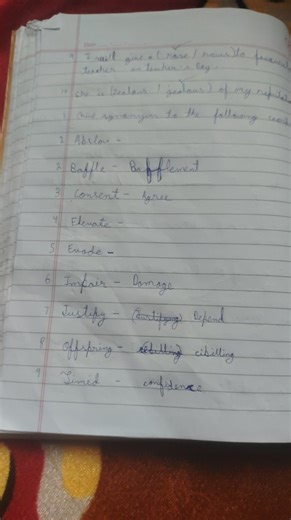 9 I will give a (rose / rows) to favourite
teacher on teacher's Day.
10 She is (zealous / jealous) of my
1 Give synonyms to the following word
1 Abstain -
2 Baffle - Bafflement
3 Consent - Agree
4 Elevate -
5 Evade -
6 Impair - Damage
7 Justify - Depend
8 Offspring - cibilling
9 Timid - confidence